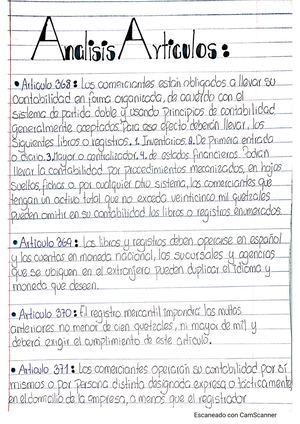 Analisis Articulos:
• Articulo 368: Los comerciantes están obligados a llevar su
contabilidad en forma organizada, de acuerdo con el
sistema de partida doble y usando principios de contabilidad
generalmente aceptados. Para ese efecto deberán llevar, los
siguientes libros o registros. 1. Inventarios 2. De primera entrada
o diario 3. Mayor o centralizador. 4. de estados financieros. Podrán
llevar la contabilidad por procedimientos mecanizados, en hojas
sueltas, fichas o por cualquier otro sistema, los comerciantes que
tengan un activo total que no exceda veinticinco mil quetzales
pueden omitir en su contabilidad los libros o registros enumerados.
• Articulo 369: Los libros y registros deben operarse en español
y las cuentas en moneda nacional, las sucursales y agencias
que se ubiquen en el extranjero pueden duplicar el idioma y
moneda que deseen.
• Articulo 370: El registro mercantil impondrá las multas
anteriores no menor de cien quetzales, ni mayor de mil y
deberá exigir el cumplimiento de este articulo.
• Articulo 371: Los comerciantes operarán su contabilidad por sí
mismos o por persona distinta designada expresa o tácticamente
en el domicilio de la empresa, a menos que el registrador
Escaneado con CamScanner